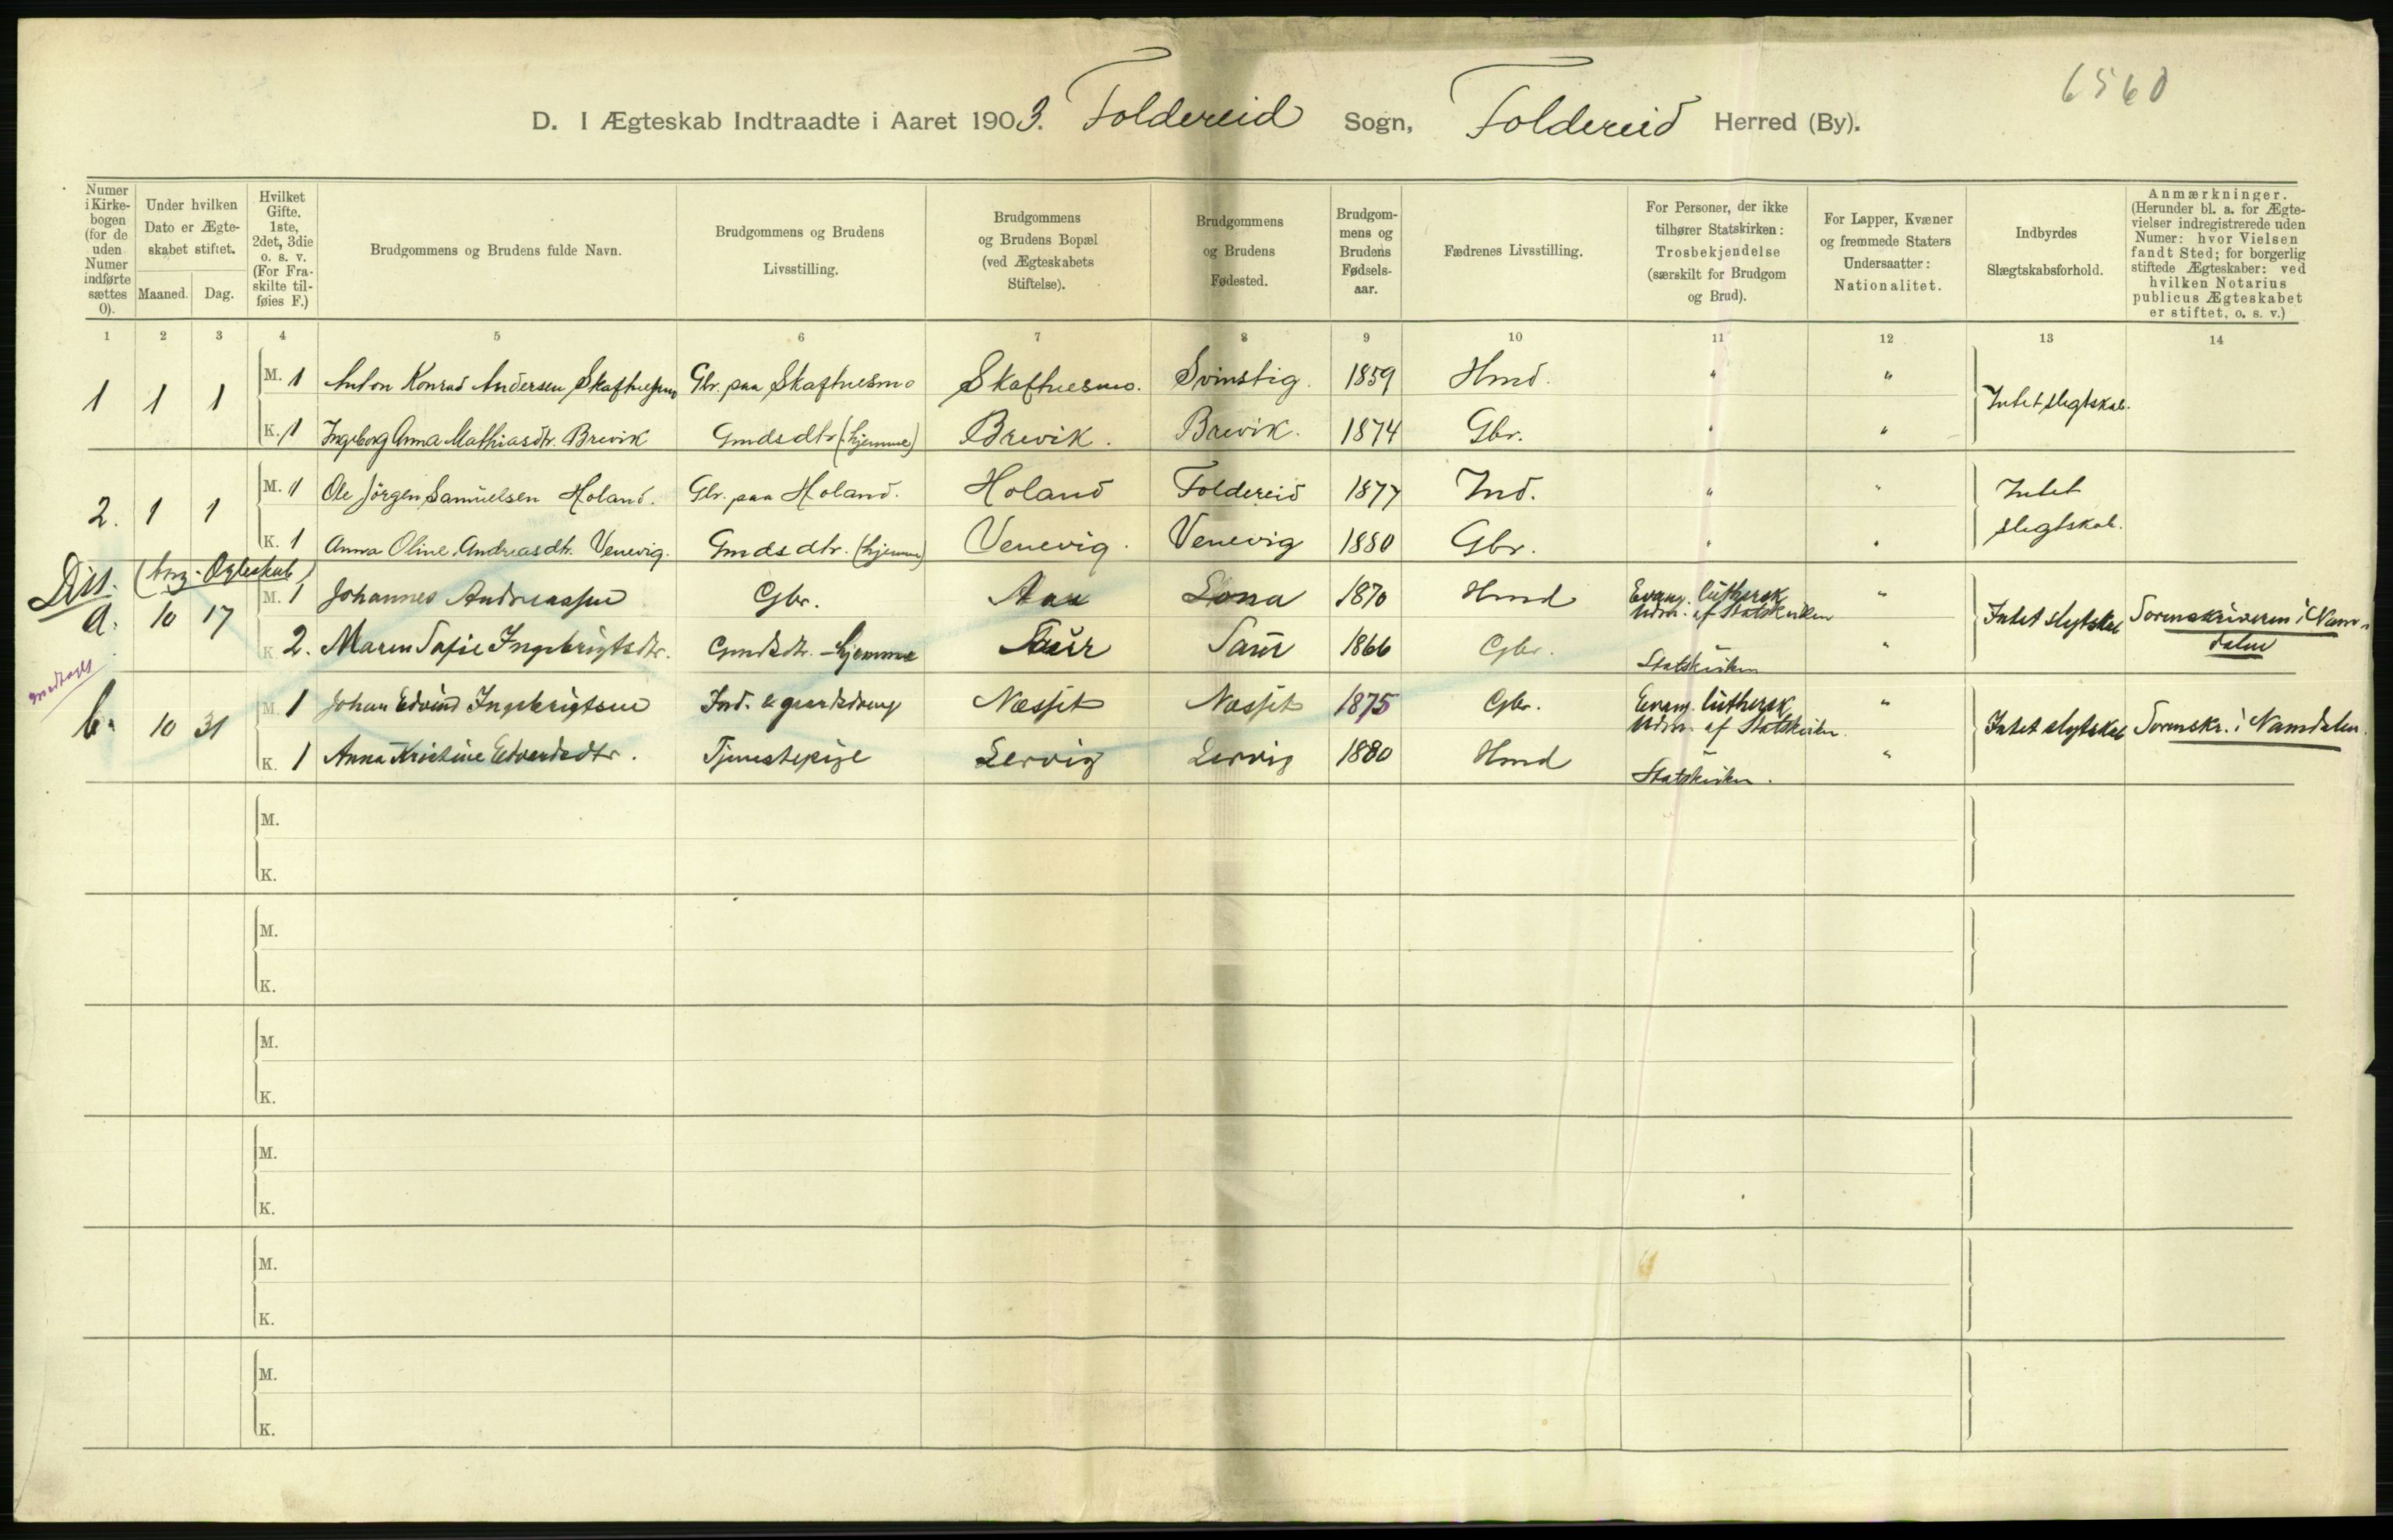 6560
D. I Ægteskab Indtraadte i Aaret 1903. Foldereid Sogn, Foldereid Herred (By).
Numer i Kirke-bogen (for de uden Numer indførte sættes 0).
Under hvilken Dato er Ægte-skabet stiftet.
Maaned. Dag.
Hvilket Gifte. 1ste, 2det, 3die o. s. v. (For Fra-skilte til-føies F.)
Brudgommens og Brudens fulde Navn.
Brudgommens og Brudens Livsstilling.
Brudgommens og Brudens Bopæl (ved Ægteskabets Stiftelse).
Brudgommens og Brudens Fødested.
Brudgom-mens og Brudens Fødsels-aar.
Fædrenes Livsstilling.
For Personer, der ikke tilhører Statskirken: Trosbekjendelse (særskilt for Brudgom og Brud).
For Lapper, Kvæner og fremmede Staters Undersaatter: Nationalitet.
Indbyrdes Slægtskabsforhold.
Anmærkninger. (Herunder bl. a. for Ægte-vielser indregistrerede uden Numer: hvor Vielsen fandt Sted; for borgerlig stiftede Ægteskaber: ved hvilken Notarius publicus Ægteskabet er stiftet, o. s. v.)
1 2 3 4 5 6 7 8 9 10 11 12 13 14
1 1 1 M. 1 Anton Konrad Andersen Skafthesmo Gbr. paa Skafthesmo Skafthesmo. Svinstig. 1859 Hmd. " " Intet slegtskab.
K. 1 Ingeborg Anna Mathiasdtr. Brevik Gmdsdtr (hjemme) Brevik. Brevik. 1874 Gbr. " "
2. 1 1 M. 1 Ole Jörgen Samuelsen Holand. Gbr. paa Holand. Holand Foldereid 1877 Ind. " " Intet slegtskab.
K. 1 Anna Oline Andreasdtr. Venevig. Gmdsdtr. (hjemme) Venevig. Venevig 1880 Gbr. " "
Diss. (Ang. Ægteskab)
a. 10 17 M. 1 Johannes Andreassen Gbr. Aae Lona 1870 Hmd Evang. luthersk Udm. af Statskirken " Intet slegtskab Sorenskriveren i Namdalen
K. 2. Maren Sofie Ingebrigtsdtr. Gmdsdtr. hjemme Saur Saur 1866 Gbr. Statskirken "
medtages
b. 10 31 M. 1 Johan Edvind Ingebrigtsen Ind. & gaardsdreng Næsset Næsset 1875 Gbr. Evang. luthersk Udm. af Statskirken. " Intet slegtskab Sorenskr. i Namdalen.
K. 1 Anna Kristine Edvardsdtr. Tjenestepige Lervig Lervig 1880 Hmd Statskirken. "
M.
K.
M.
K.
M.
K.
M.
K.
M.
K.
M.
K.